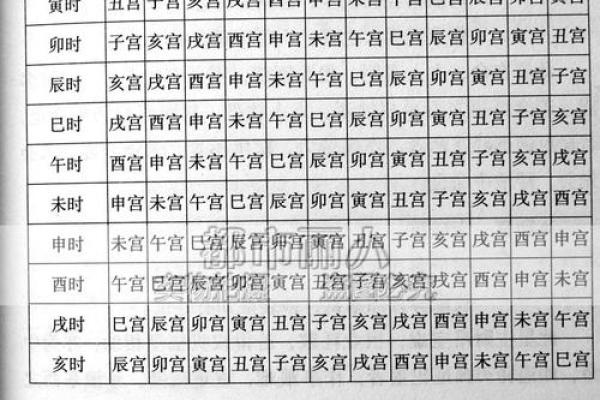 寅时 丑宫 子宫 亥宫 戌宫 酉宫 申宫 未宫 午宫 巳宫 辰宫 卯宫 寅宫
卯时 子宫 亥宫 戌宫 酉宫 申宫 未宫 午宫 巳宫 辰宫 卯宫 寅宫 丑宫
辰时 亥宫 戌宫 酉宫 申宫 未宫 午宫 巳宫 辰宫 卯宫 寅宫 丑宫 子宫
巳时 戌宫 酉宫 申宫 未宫 午宫 巳宫 辰宫 卯宫 寅宫 丑宫 子宫 亥宫
午时 酉宫 申宫 未宫 午宫 巳宫 辰宫 卯宫 寅宫 丑宫 子宫 亥宫 戌宫
未时 申宫 未宫 午宫 巳宫 辰宫 卯宫 寅宫 丑宫 子宫 亥宫 戌宫 酉宫
申时 未宫 午宫 巳宫 辰宫 卯宫 寅宫 丑宫 子宫 亥宫 戌宫 酉宫 申宫
都市丽人
酉时 午宫 巳宫 辰宫 卯宫 寅宫 丑宫 子宫 亥宫 戌宫 酉宫 申宫 未宫
戌时 巳宫 辰宫 卯宫 寅宫 丑宫 子宫 亥宫 戌宫 酉宫 申宫 未宫 午宫
亥时 辰宫 卯宫 寅宫 丑宫 子宫 亥宫 戌宫 酉宫 申宫 未宫 午宫 巳宫